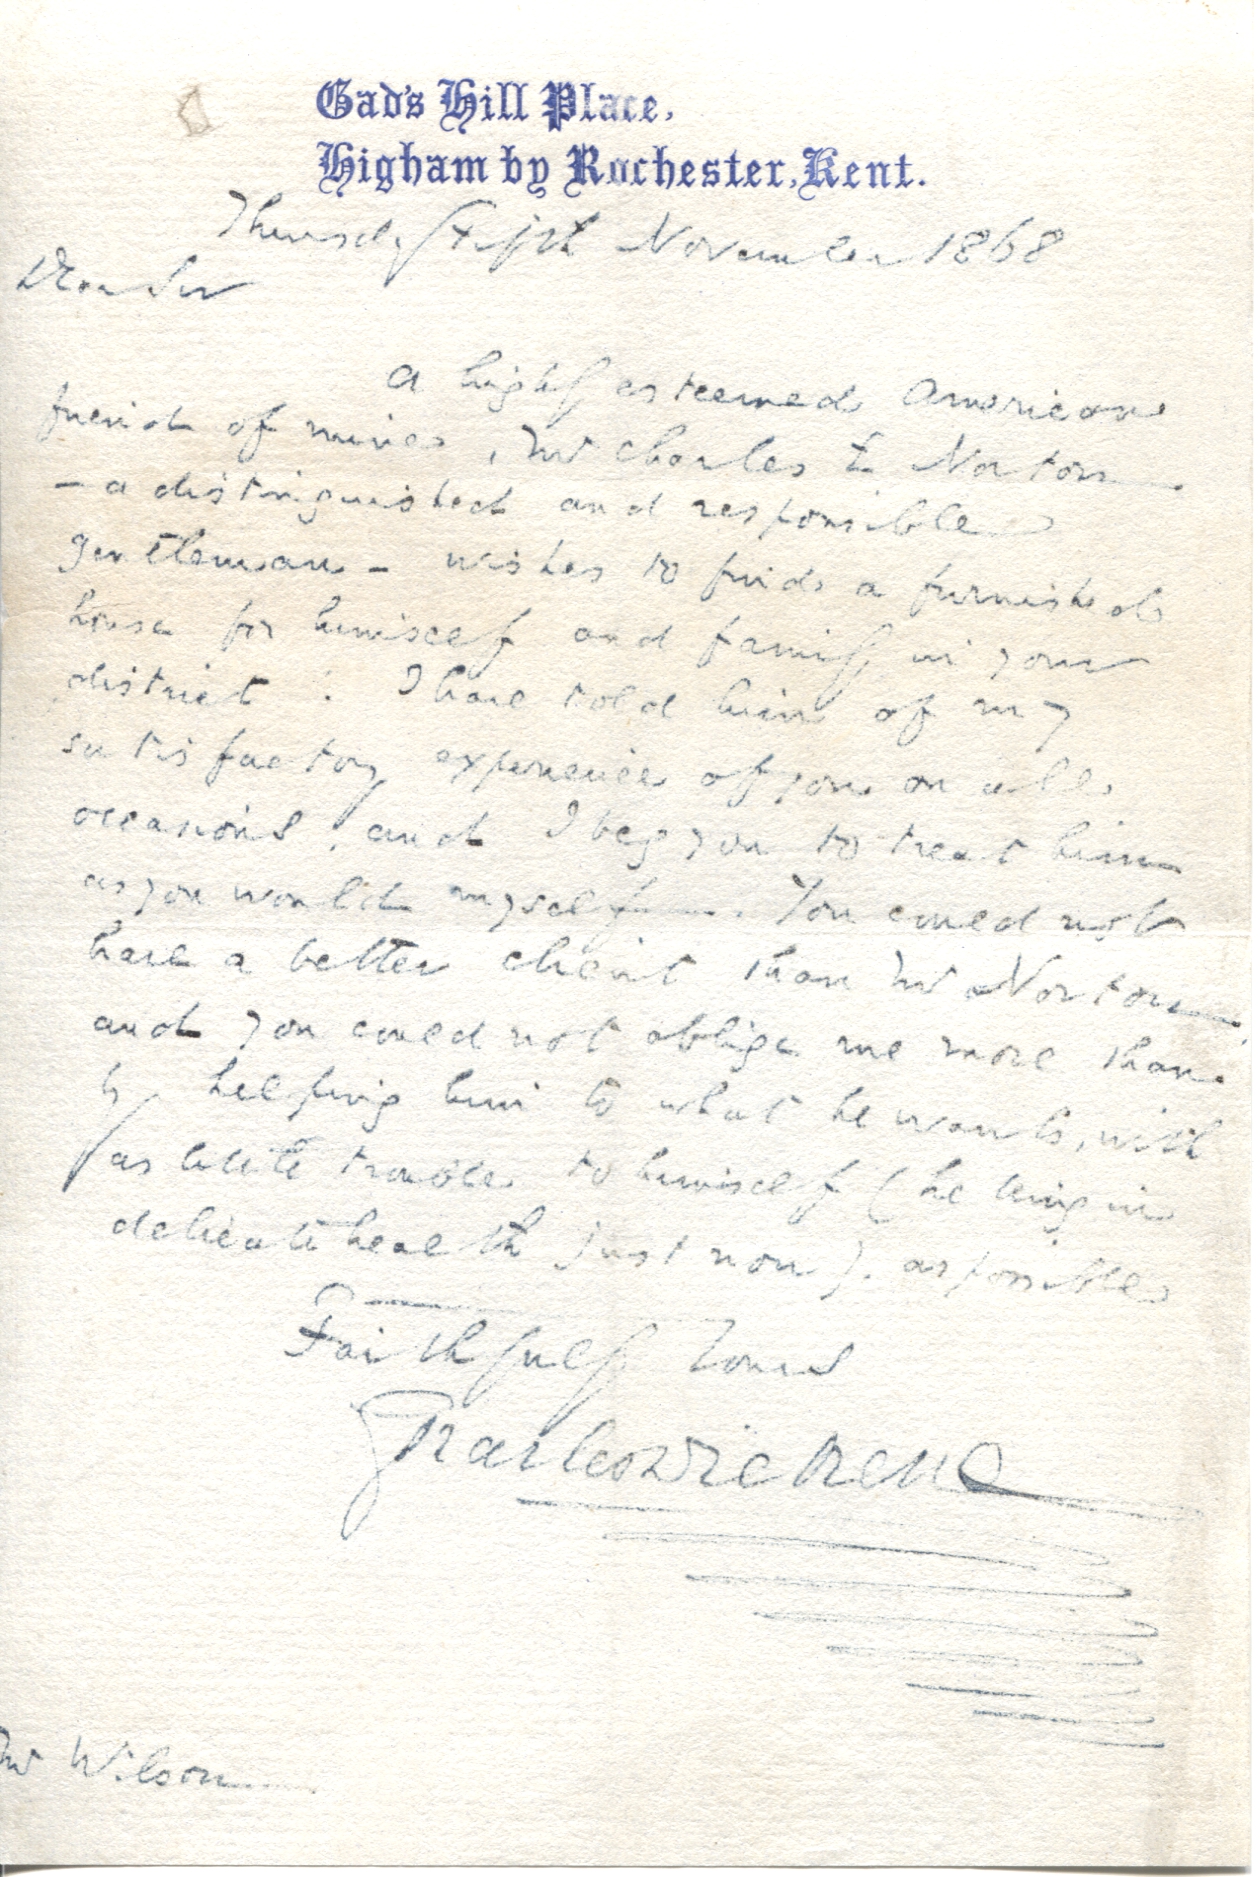 Gad's Hill Place,
Higham by Rochester, Kent.
Thursday Fifth November 1868
Dear Sir
A highly esteemed American
friend of mine, Mr Charles E Norton
– a distinguished and responsible
gentleman – wishes to find a furnished
house for himself and family in your
district. I have told him of my
satisfactory experience of you on all
occasions, and I beg you to treat him
as you would myself. You could not
have a better client than Mr Norton,
and you could not oblige me more than
by helping him to what he wants, with
as little trouble to himself (he being in
delicate health just now), as possible
Faithfully Yours
Charles Dickens
Mr Wilson